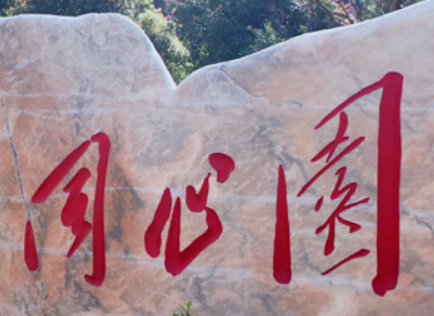 同心園